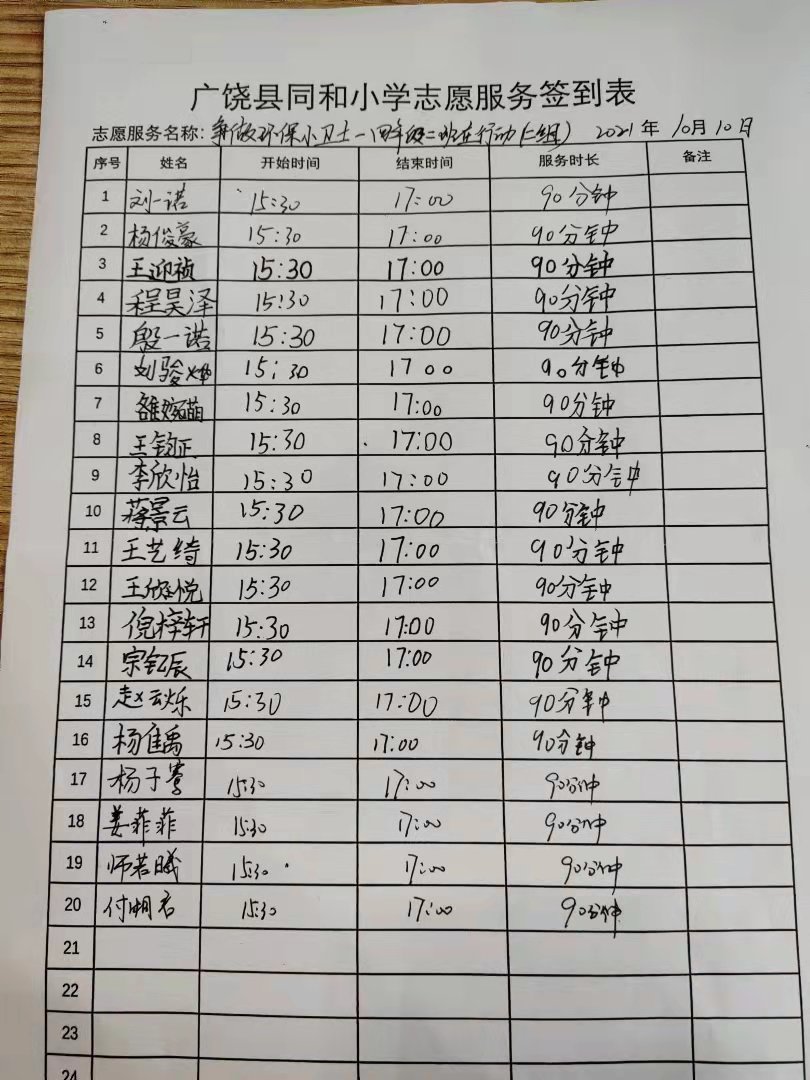 广饶县同和小学志愿服务签到表
志愿服务名称：争做环保小卫士—(四年级二班在行动(二组) 2021年10月10日
序号 姓名 开始时间 结束时间 服务时长 备注
1 刘一诺 15:30 17:00 90分钟
2 杨俊豪 15:30 17:00 90分钟
3 王迎祯 15:30 17:00 90分钟
4 程昊泽 15:30 17:00 90分钟
5 殷一诺 15:30 17:00 90分钟
6 刘骏烨 15:30 17 00 90分钟
7 雒婉萌 15:30 17:00 90分钟
8 王钧正 15:30 17:00 90分钟
9 李欣怡 15:30 17:00 90分钟
10 蒋景云 15:30 17:00 90分钟
11 王艺绮 15:30 17:00 90分钟
12 王欣悦 15:30 17:00 90分钟
13 倪梓轩 15:30 17:00 90分钟
14 宗钇辰 15:30 17:00 90分钟
15 赵云烁 15:30 17:00 90分钟
16 杨隹禹 15:30 17:00 90分钟
17 杨子骞 15:30 17:00 90分钟
18 姜菲菲 15:30 17:00 90分钟
19 师若曦 15:30 17:00 90分钟
20 付明君 15:30 17:00 90分钟
21
22
23
24